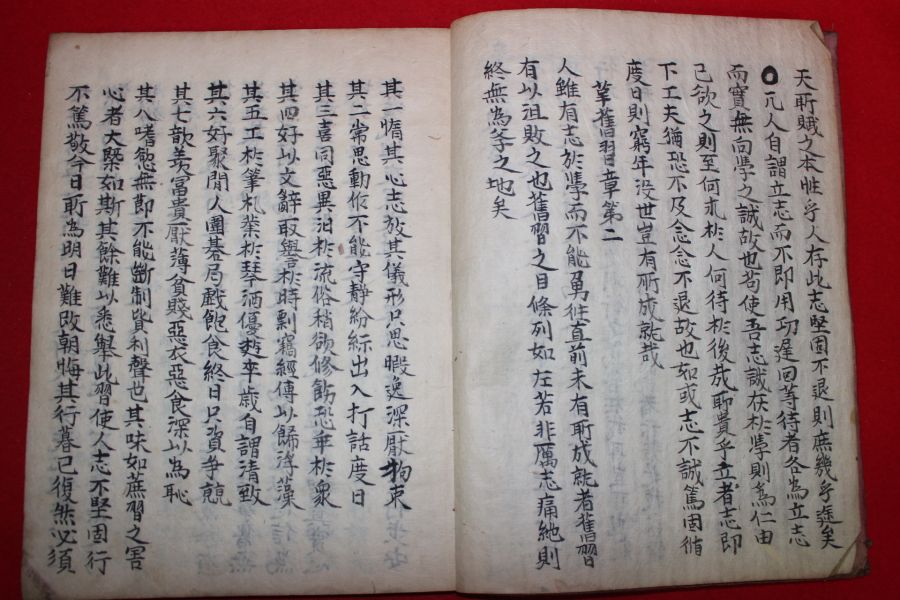 天所賦之本性乎人存此志堅固不退則庶幾乎道矣
○凡人自謂立志而不即用功遲回等待者名為立志
而實無向學之誠故也苟使吾志誠在於學則為仁由
己欲之則至何求於人何待於後哉所貴乎立者志即
下工夫猶恐不及念念不退故也如或志不誠篤因循
度日則窮年沒世豈有所成就哉
革舊習章第二
人雖有志於學而不能勇往直前未有所成就者舊習
有以沮敗之也舊習之目條列如左若非厲志痛絶則
終無為學之地矣
其一惰其心志放其儀形只思暇逸深厭拘束
其二常思動作不能守靜紛紜出入打話度日
其三喜同惡異汩於流俗稍欲修飭恐乖於衆
其四好以文辭取譽於時剽竊經傳以歸浮藻
其五工於筆札業於琴酒優遊卒歲自謂清致
其六好聚閒人圍碁局戲飽食終日只資爭競
其七歆羨富貴厭薄貧賤惡衣惡食深以為恥
其八嗜慾無節不能斷制貨利聲色其味如蔗習之害
心者大槩如斯其餘難以悉舉此習使人志不堅固行
不篤敬今日所為明日難改朝悔其行暮已復然必須